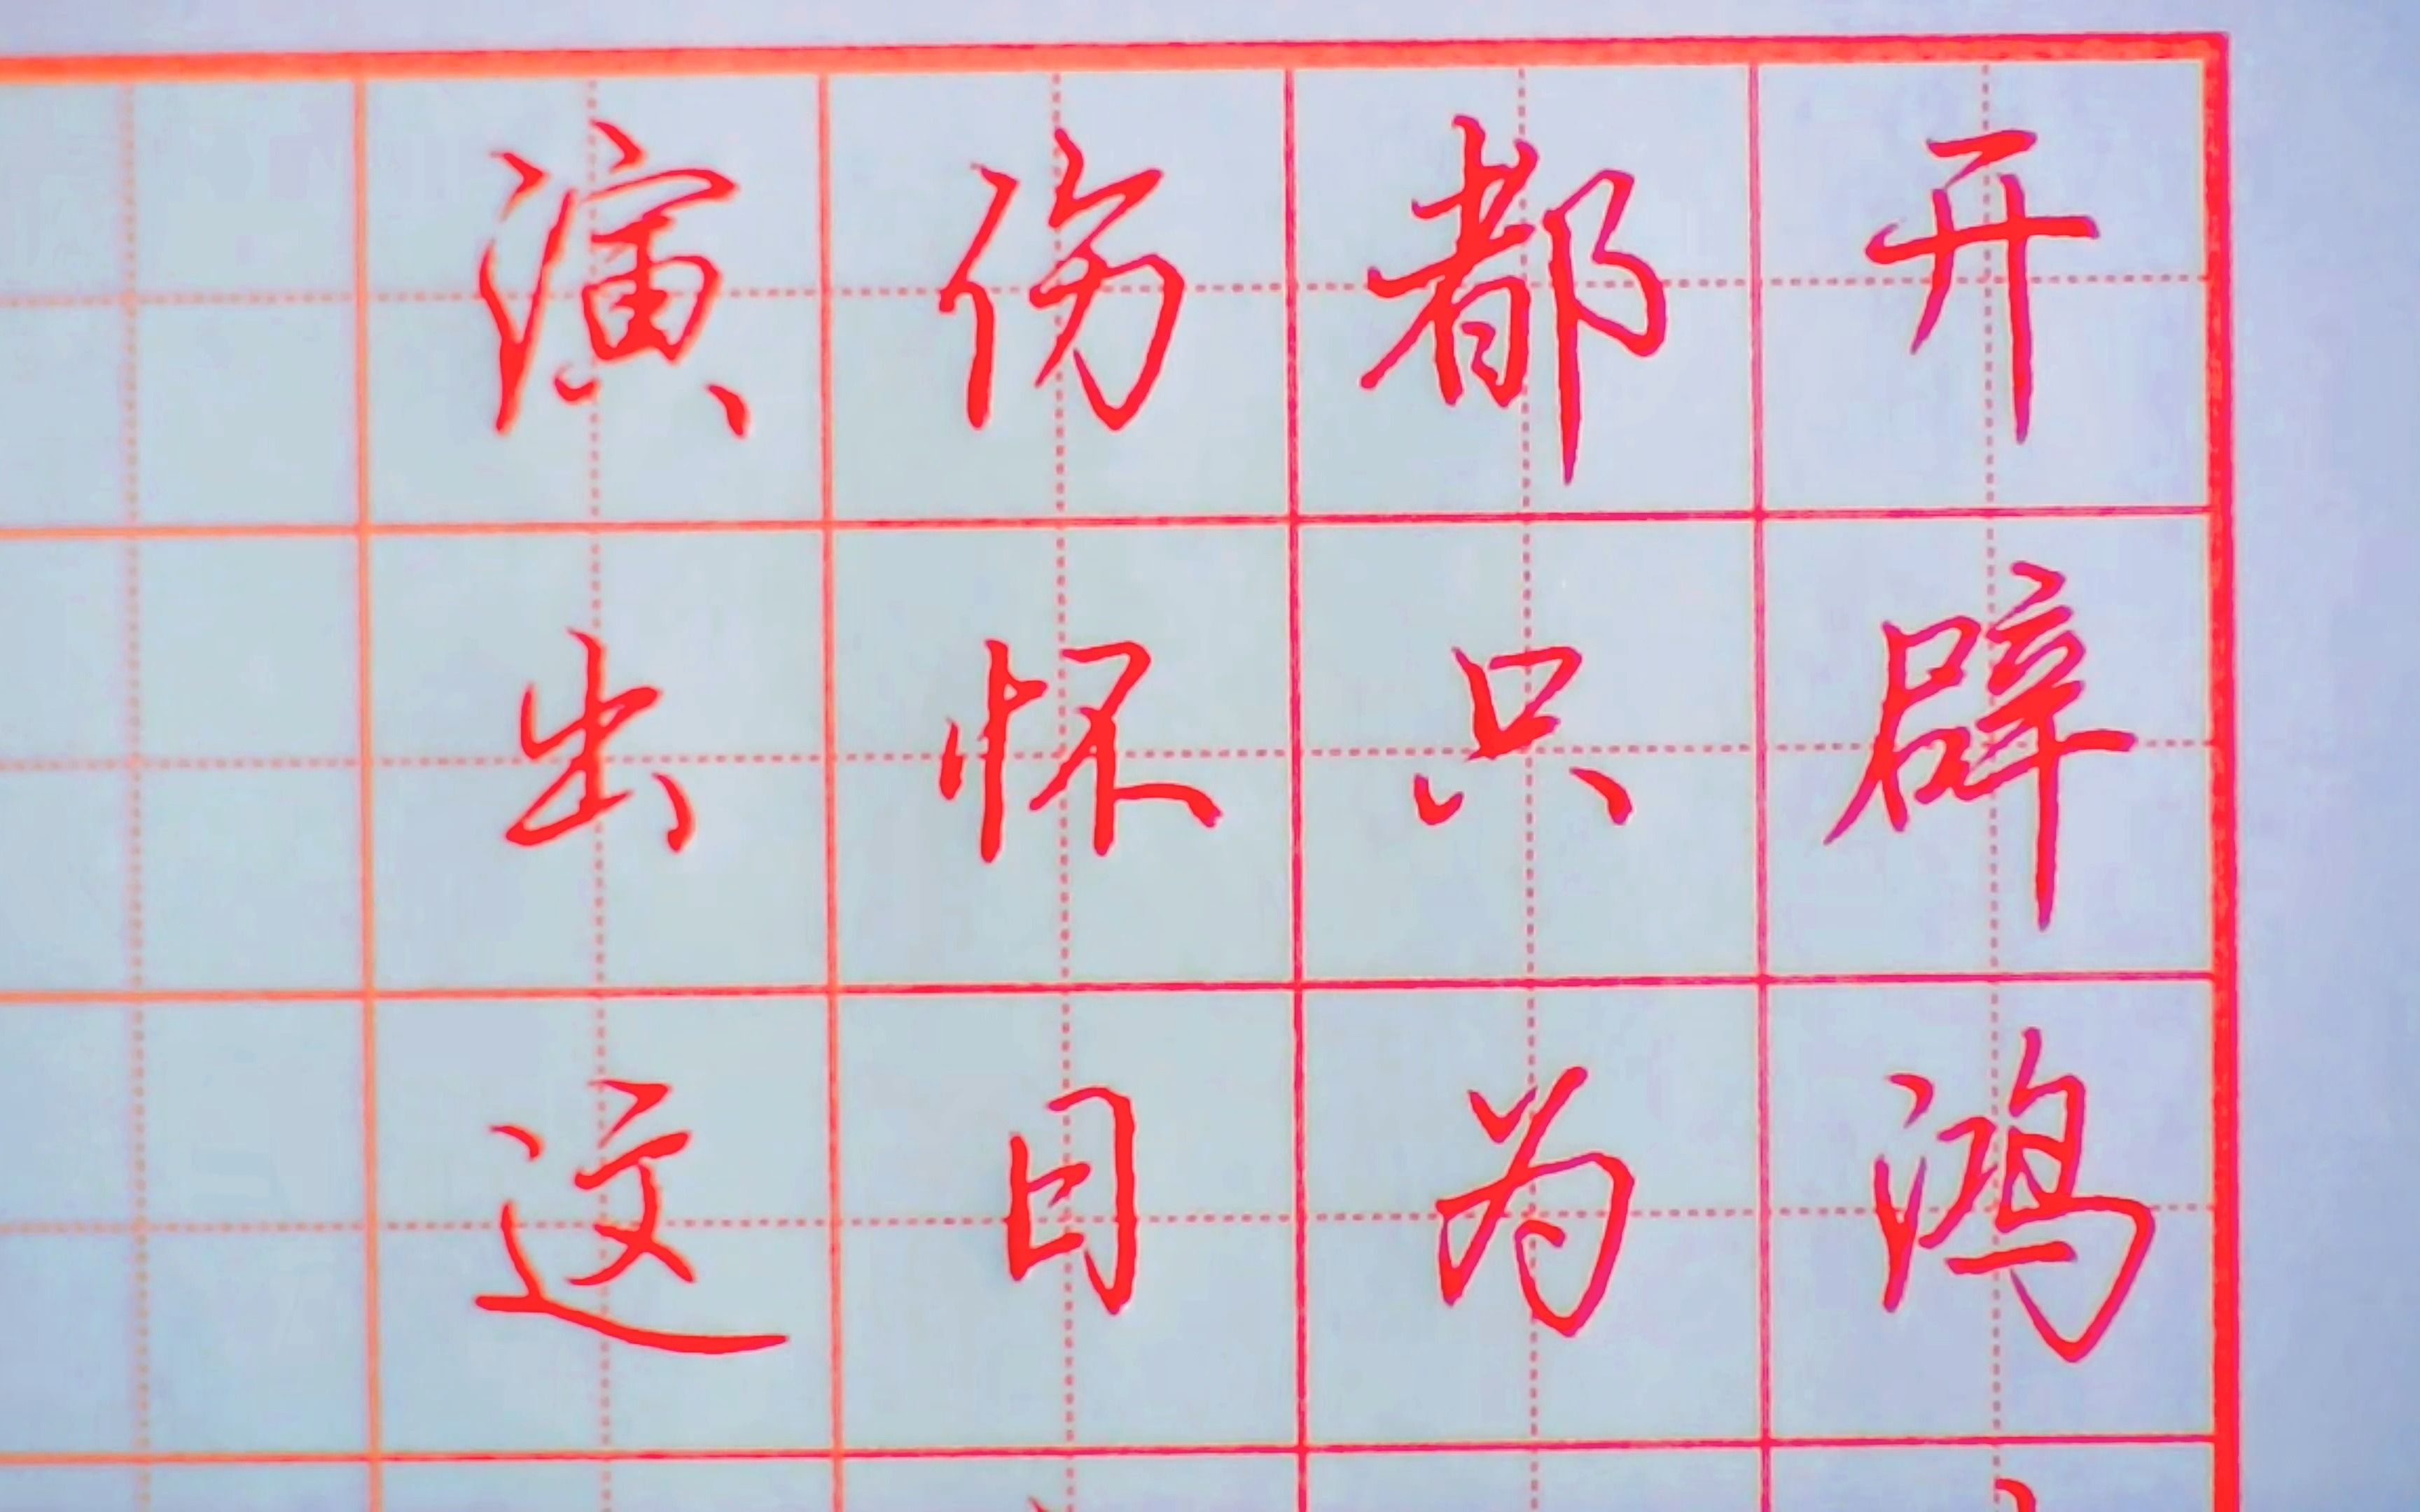 开辟鸿
都只为
伤怀日
演出这